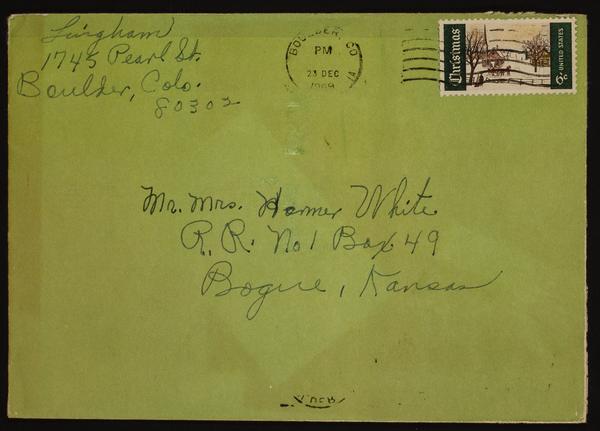 Lingham
1745 Pearl St.
Boulder, Colo.
80302
BOULDER, CO
PM
23 DEC
1969
Christmas
6c UNITED STATES
Mr. Mrs. Homer White
R. R. No 1 Box 49
Bogue, Kansas